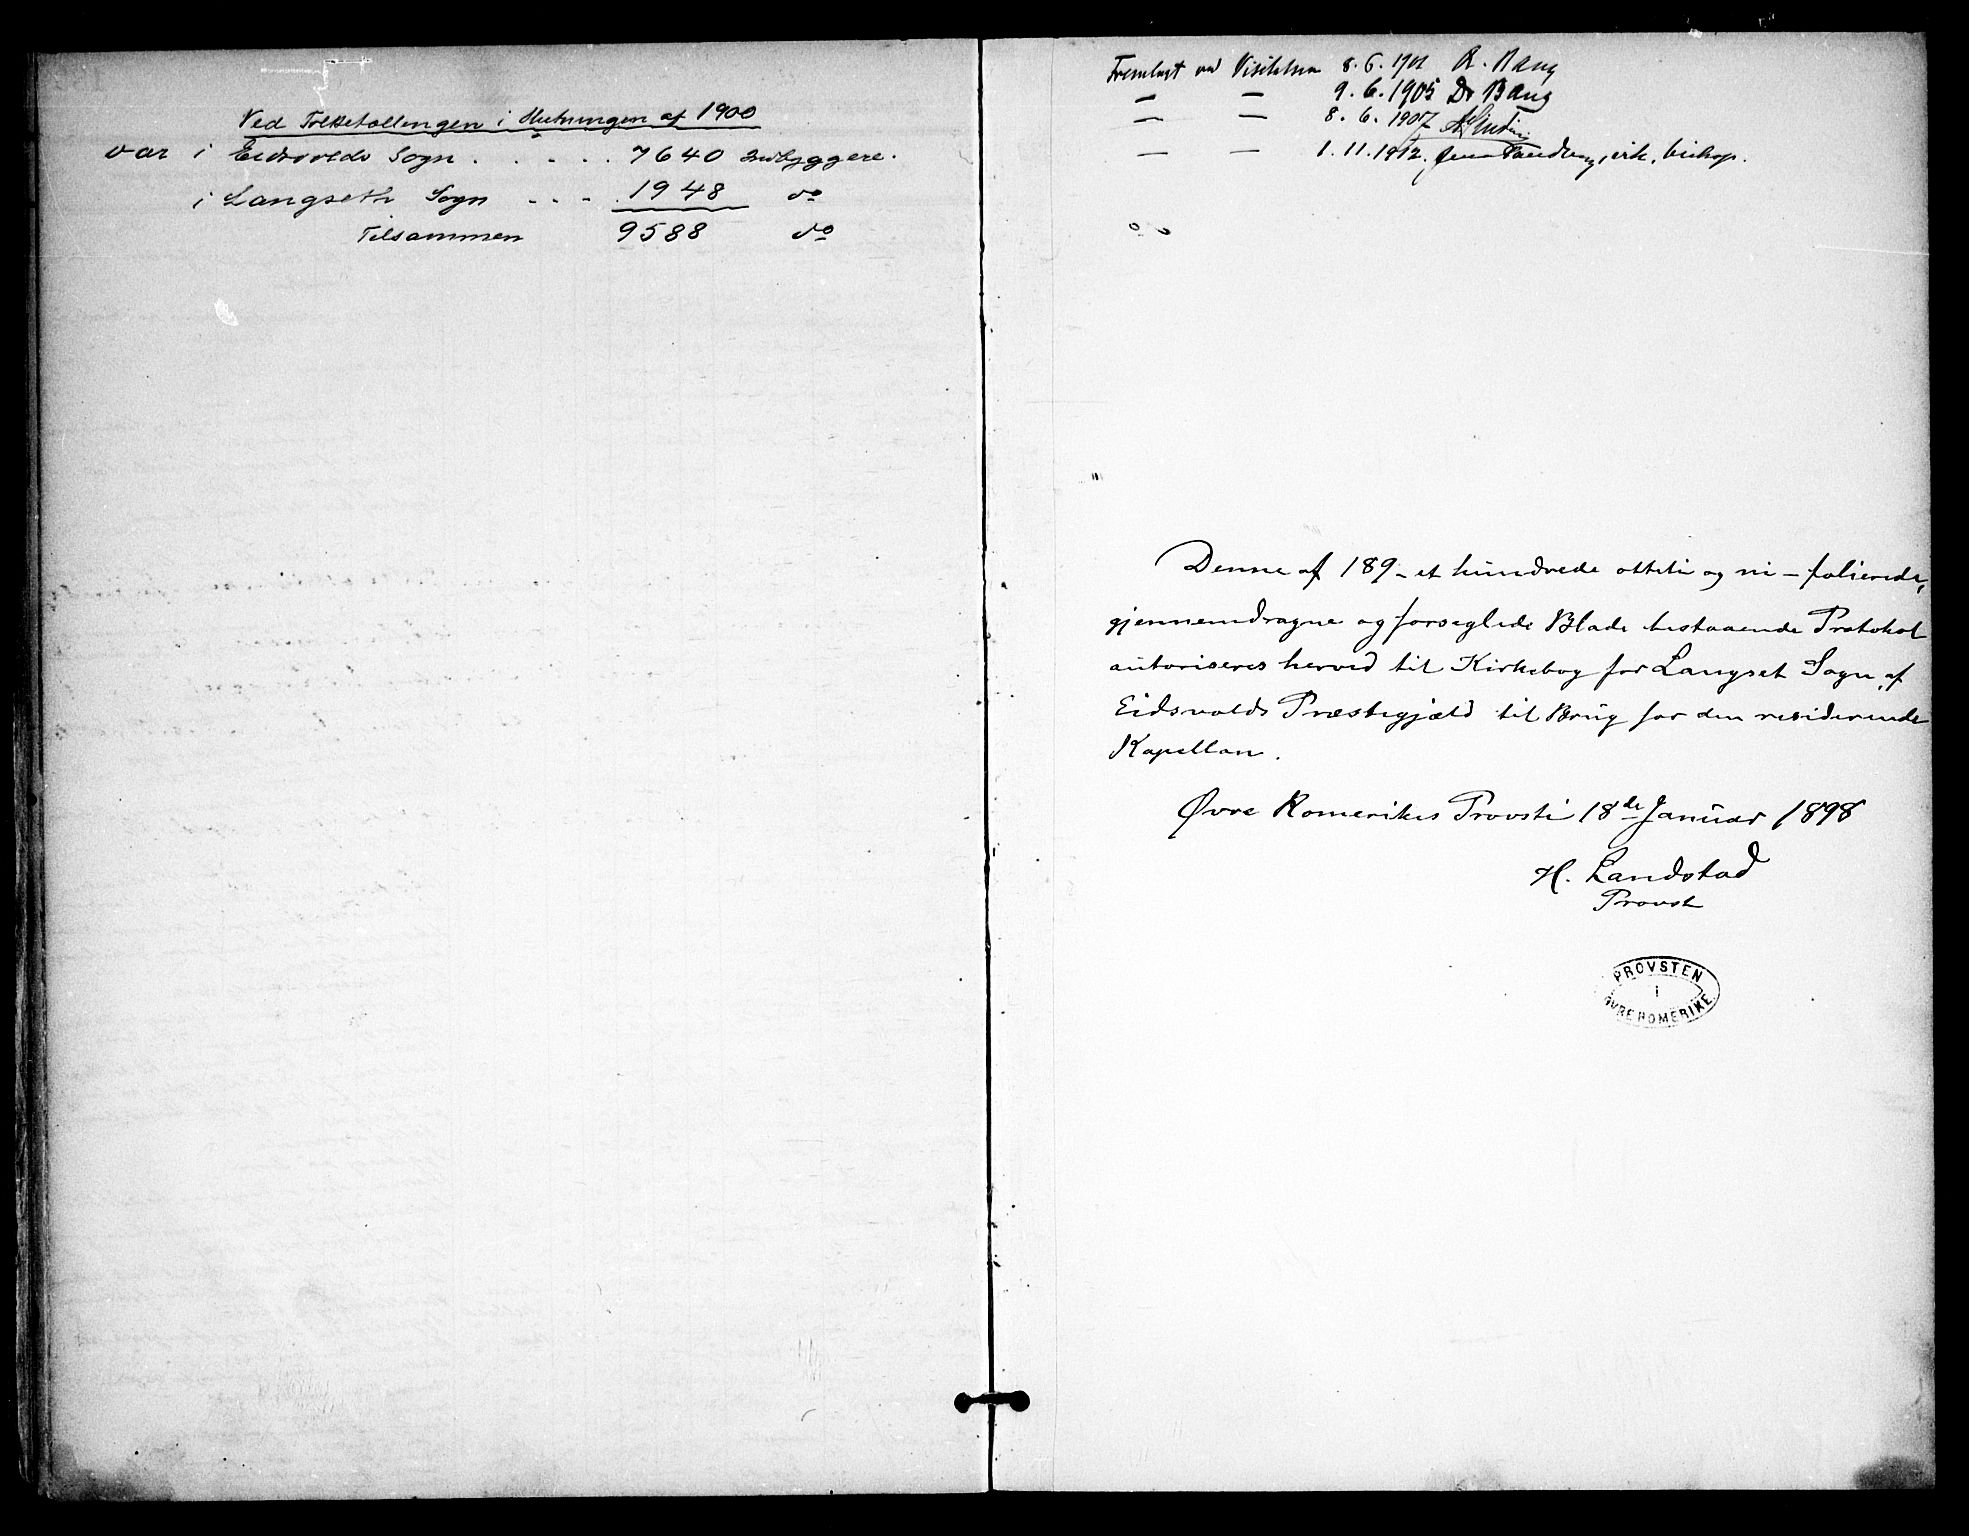 Ved Folketællingen i Slutningen af 1900
var i Eidsvolds Sogn . . . . . 7640 Indbyggere.
i Langseth Sogn - - - 1948 do
Tilsammen 9588 do
Fremlagt ved Visitatsen 8.6.1901 A. Bang
— — 9.6.1905 Dr Bang
— — 8.6.1907
— — 1.11.1912. Jens Tandberg, vik. biskop.
Denne af 189 - et hundrede otteti og ni - folierede,
gjennemdragne og forseglede Blade bestaaende Protokol
autoriseres herved til Kirkebog for Langset Sogn af
Eidsvolds Præstegjæld til Brug for den residerende
Kapellan.
Øvre Romerikes Provsti 18de Januar 1898
H. Landstad
Provst
PROVSTEN
I
ØVRE ROMERIKE